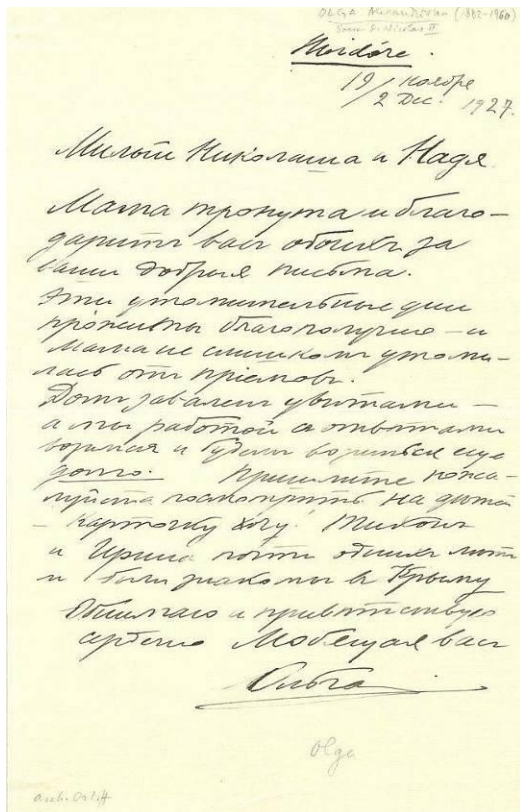 OLGA Alexandrovna (1882-1960)
Soeur de Nicolas II
Hvidöre.
19/2 Ноября Дек. 1927.
Милые Николаша и Надя
Мама тронута и благо-
даритъ васъ обоихъ за
ваши добрыя письма.
Эти утомительные дни
прожиты благополучно – и
Мама не слишкомъ утоми-
лась отъ прiемовъ.
Домъ заваленъ цвѣтами –
а мы работой съ отвѣтами
возимся и будемъ возиться еще
долго. Пришлите пожа-
луйста посмотрѣть на дѣтей
– карточку хочу! Тихонъ
и Ирина почти однихъ лѣтъ
и были знакомы въ Крыму
Обнимаю и привѣтствую
сердечно Любящая васъ
Ольга
Olga
Arch. Orloff